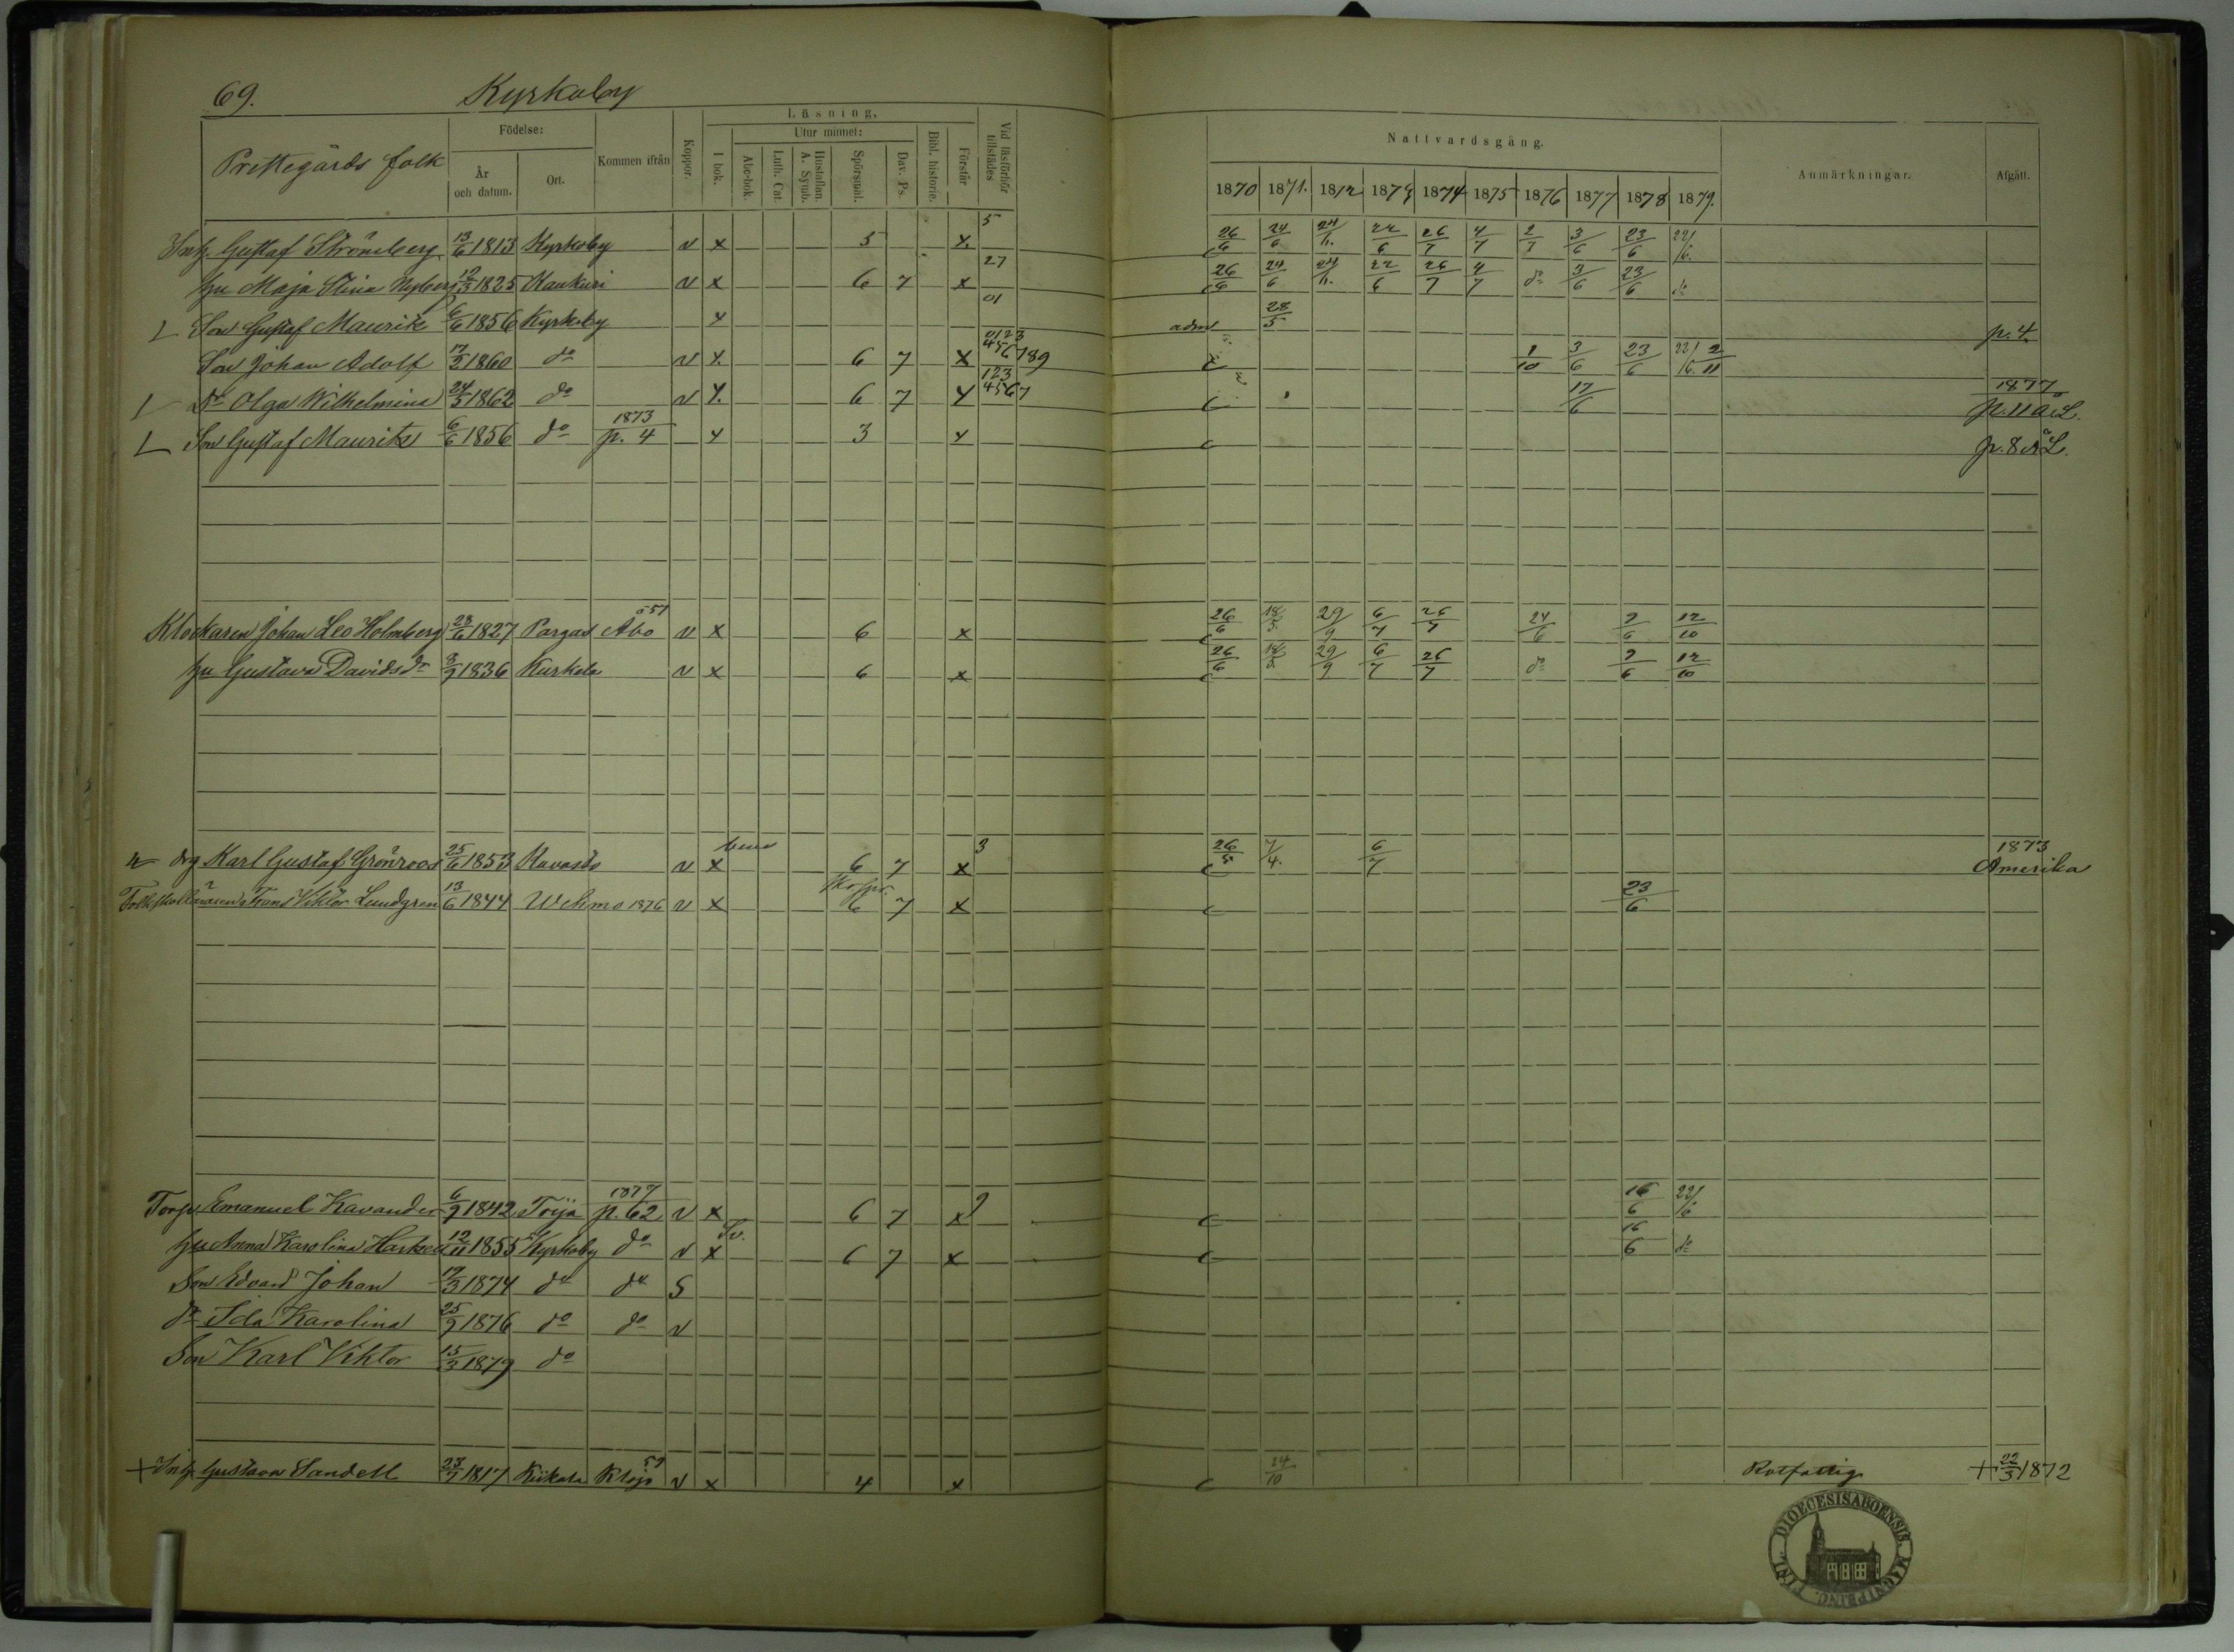 69. Kyrkoby
Prestegårds folk Födelse: År och datum. Ort. Kommen ifrån Koppor. Läsning. I bok. Utur minnet: Abc-bok. Luth. Cat. Hustaflan. A. Symb. Spörsmål. Dav. Ps. Bibl. historie. Förstår Vid läsförhör tillstädes
Nattvardsgång. 1870 1871. 1872 1873 1874 1875 1876 1877 1878 1879. Anmärkningar. Afgått.
Inh. Gustaf Strömberg 13/6 1813 Kyrkoby v x 5 x. 5 26/6 24/6 24/6. 22/6 26/7 4/7 2/7 3/6 23/6 22/6.
hu Maja Stina Nyberg 12/3 1825 Kaukuri v x 6 7 x 27 26/6 24/6 24/6. 22/6 26/7 4/7 do 3/6 23/6 do
Son Gustaf Maurits 6/6 1856 Kyrkoby x 01 adm 28/5 p. 4
Son Johan Adolf 17/2 1860 do v x. 6 7 x 0123 456789 1/10 3/6 23/6 22/6. 2/11
Dr Olga Wilhelmina 24/5 1862 do v x. 6 7 x 123 4567 17/6 1877 p. 11 a. L.
Son Gustaf Maurits 6/6 1856 do 1873 p. 4 x 3 x p. 8 å L.
Klockaren Johan Leo Holmberg 28/6 1827 Pargas Abo 551 v x 6 x 26/6 18/5 29/9 6/7 26/7 24/6 2/6 12/10
hu Gustava Davidsdr 8/9 1836 Kurkela v x 6 x 26/6 18/5 29/9 6/7 26/7 do 2/6 12/10
drg Karl Gustaf Grönroos 25/6 1853 Kavasto v x 6 7 x 3 26/5 7/4. 6/7 1873 Amerika
Folkskolläraren Frans Viktor Lundgren 13/6 1844 Wehmo 1876 v x 6 7 x 23/6
Torp. Emanuel Kavander 6/9 1842 Toija 1877 p. 62 v x 6 7 x 9 16/6 22/6
hu Anna Karolina 12/11 1855 Kyrkoby do v x Sv. 6 7 x 16/6 do
Son Edvard Johan 17/3 1874 do do S
dr Ida Karolina 25/9 1876 do do v
Son Karl Viktor 15/3 1879 do
+ Inh. Gustava Sandell 23/7 1817 Kiikala Kloja 59 v x 4 x 14/10 Rotfattig + 22/3 1872
DIOECESIS ABOENSIS